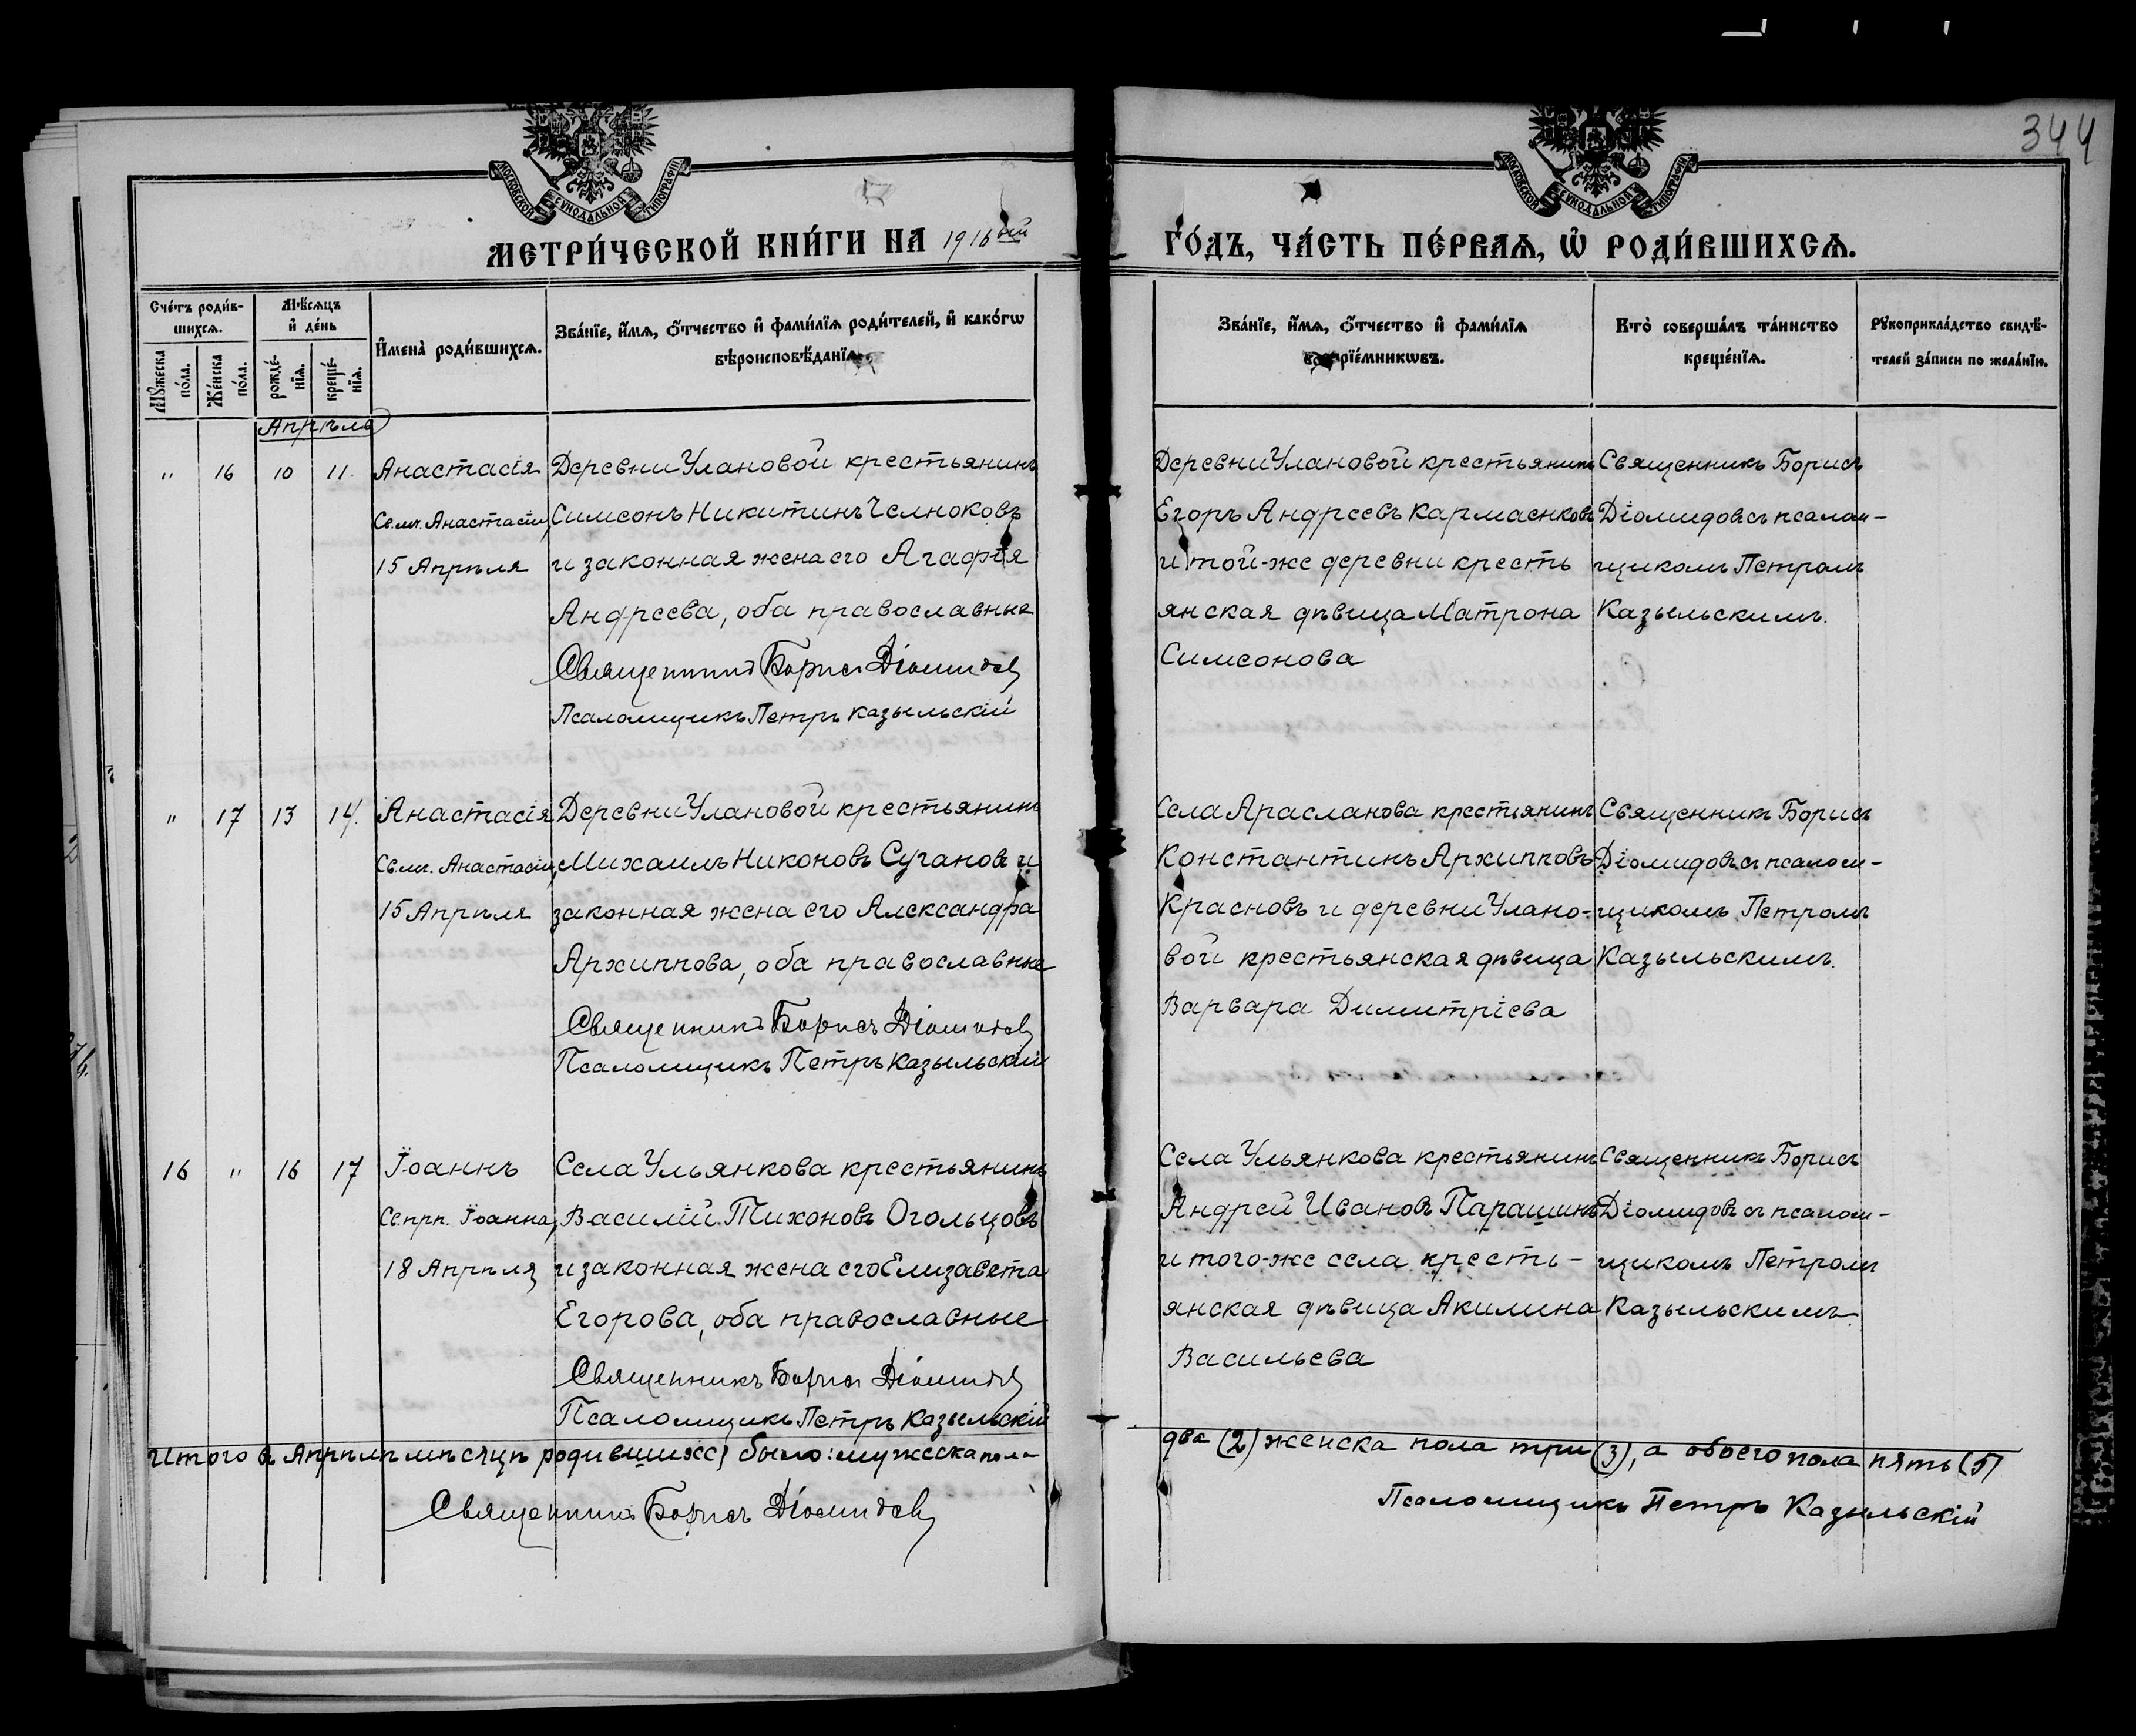 344
МОСКОВСКОЙ СѴНОДАЛЬНОЙ ТИПОГРАФІИ
МОСКОВСКОЙ СѴНОДАЛЬНОЙ ТИПОГРАФІИ
МЕТРИ́ЧЕСКОЙ КНИ́ГИ НА 1916ый
ГО́ДЪ, ЧА́СТЬ ПЕ́РВАѦ, Ѡ҆ РОДИ́ВШИХСѦ.
Сче́тъ роди́в-
шихсѧ.
Мꙋ́жеска
по́ла.
Же́нска
по́ла.
Мѣ́сѧцъ
и҆ де́нь
рожде́-
нїѧ.
креще́-
нїѧ.
И҆мена̀ роди́вшихсѧ.
Зва́нїе, и҆́мѧ, ѻ҆́тчество и҆ фами́лїѧ роди́телей, и҆ како́гѡ
вѣроисповѣ́данїѧ.
Зва́нїе, и҆́мѧ, ѻ҆́тчество и҆ фами́лїѧ
воспрїе́мникѡвъ.
Кто̀ соверша́лъ та́инство
креще́нїѧ.
Рꙋкоприкла́дство свидѣ́-
телей за́писи по жела́нїю.
Апрѣля
" 16 10 11.
Анастасія
Св. мч. Анастасіи,
15 Апрѣля
Деревни Улановой крестьянинъ
Симеонъ Никитинъ Челноковъ
и законная жена его Агафія
Андреева, оба православные
Священникъ Борисъ Діомидовъ
Псаломщикъ Петръ Казыльскій
Деревни Улановой крестьянинъ
Егоръ Андреевъ Кармаенковъ
и той-же деревни кресть
янская дѣвица Матрона
Симеонова
Священникъ Борисъ
Діомидовъ съ псалом-
щикомъ Петромъ
Казыльскимъ.
" 17 13 14.
Анастасія
Св. мч. Анастасіи,
15 Апрѣля
Деревни Улановой крестьянинъ
Михаилъ Никоновъ Суганов и
законная жена его Александра
Архиппова, оба православные
Священникъ Борисъ Діомидовъ
Псаломщикъ Петръ Казыльскій
Села Арасланова крестьянинъ
Константинъ Архипповъ
Красновъ и деревни Улано-
вой крестьянская дѣвица
Варвара Димитріева
Священникъ Борисъ
Діомидовъ съ псалом-
щикомъ Петромъ
Казыльскимъ.
16 " 16 17
Іоаннъ
Св. прп. Іоанна,
18 Апрѣля
Села Ульянкова крестьянинъ
Василій Тихоновъ Огольцовъ
и законная жена его Елизавета
Егорова, оба православные
Священникъ Борисъ Діомидовъ
Псаломщикъ Петръ Казыльскій
Села Ульянкова крестьянинъ
Андрей Ивановъ Парашинъ
и того-же села кресть-
янская дѣвица Акилина
Васильева
Священникъ Борисъ
Діомидовъ съ псалом-
щикомъ Петромъ
Казыльскимъ.
Итого въ Апрѣлѣ мѣсяцѣ родившихся было: мужеска пола
два (2) женска пола три (3), а обоего пола пять (5)
Священникъ Борисъ Діомидовъ
Псаломщикъ Петръ Казыльскій